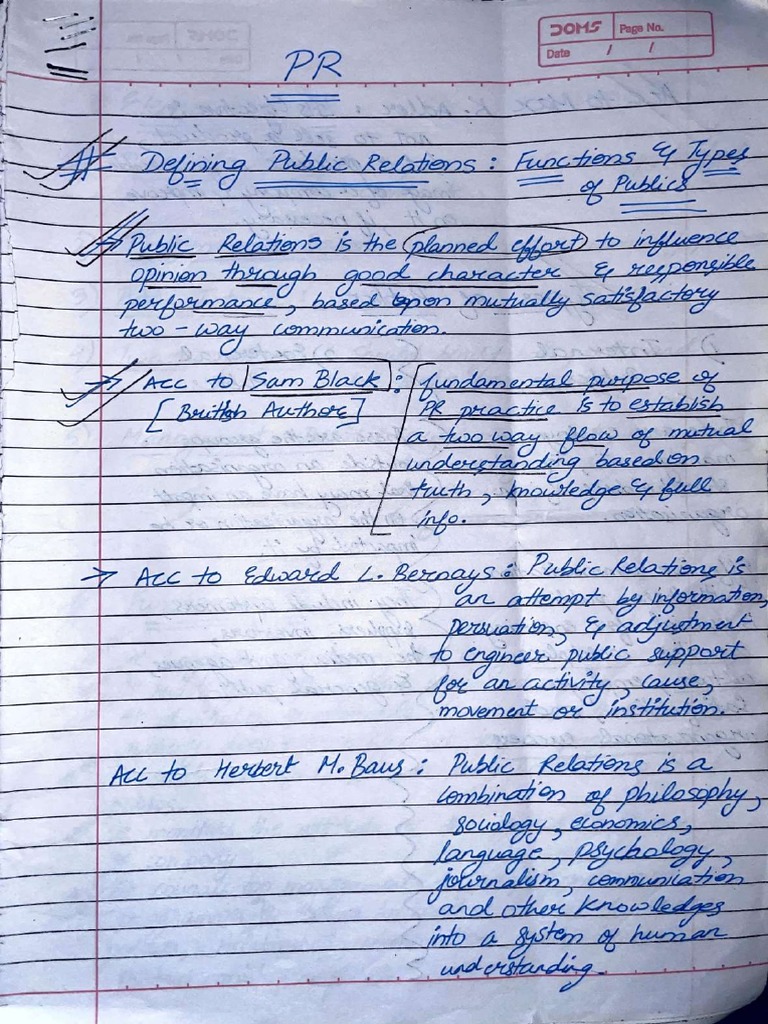 DOMS Page No.
Date / /
PR
# Defining Public Relations : Functions & Types
of Publics
→ Public Relations is the planned effort to influence
opinion through good character & responsible
performance, based upon mutually satisfactory
two-way communication.
→ Acc to Sam Black : fundamental purpose of
[British Author] PR practice is to establish
a two way flow of mutual
understanding based on
truth, knowledge & full
info.
→ Acc to Edward L. Bernays : Public Relations is
an attempt by information,
persuation, & adjustment
to engineer public support
for an activity, cause,
movement or institution.
Acc to Herbert M. Baus : Public Relations is a
combination of philosophy,
sociology, economics,
language, psychology,
journalism, communication
and other knowledges
into a system of human
understanding.